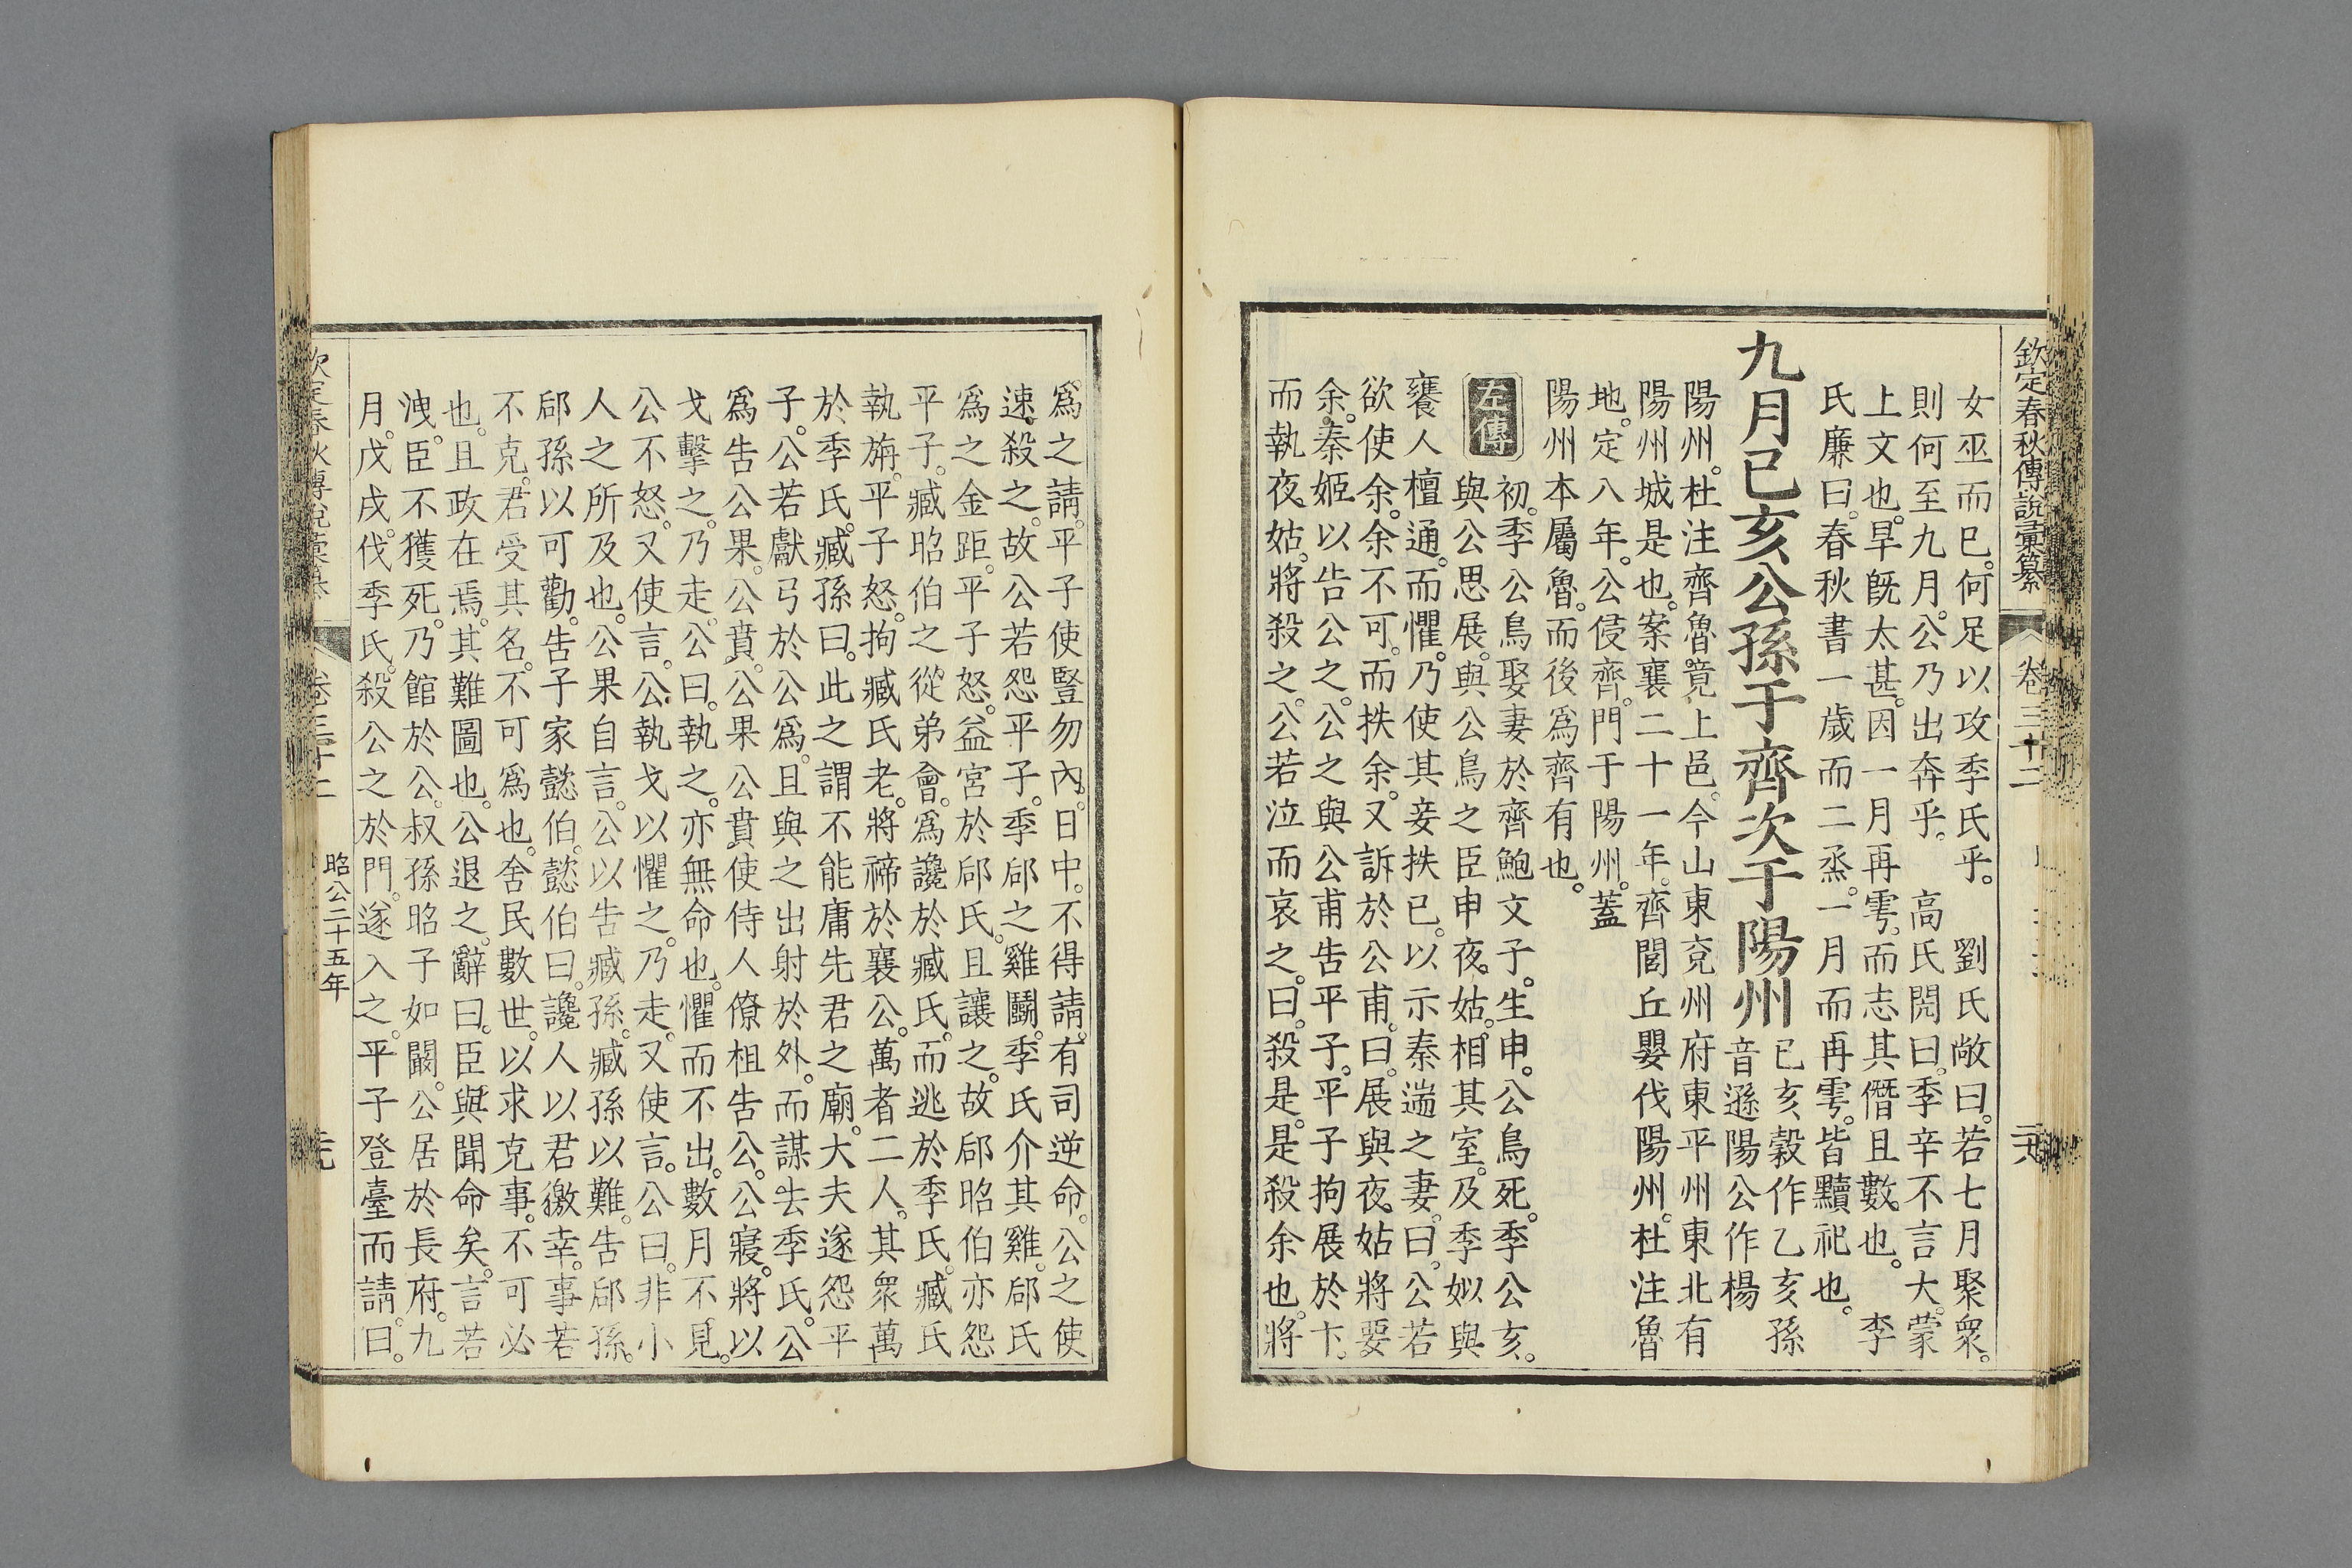 欽定春秋傳說彙纂 卷三十二 二六
女巫而巳。何足以攻季氏乎。 劉氏敞曰。若七月聚衆。
則何至九月。公乃出奔乎。 高氏閌曰。季辛不言大。蒙
上文也。旱旣太甚。因一月再雩。而志其僭且數也。 李
氏廉曰。春秋書一歲而二烝。一月而再雩。皆黷祀也。
九月己亥公孫于齊次于陽州
己亥穀作乙亥孫
音遜陽公作楊
陽州。杜注齊魯竟上邑。今山東兗州府東平州東北有
陽州城是也。案襄二十一年。齊閭丘嬰伐陽州。杜注魯
地。定八年。公侵齊。門于陽州。蓋
陽州本屬魯。而後爲齊有也。
左傳
初。季公鳥娶妻於齊鮑文子。生申。公鳥死。季公亥。
與公思展。與公鳥之臣申夜。姑。相其室。及季姒與
饔人檀通。而懼。乃使其妾抶已。以示秦遄之妻。曰。公若
欲使余。余不可。而抶余。又訴於公甫。曰。展與夜姑將要
余。秦姬以告公之。公之與公甫告平子。平子拘展於卞。
而執夜姑。將殺之。公若泣而哀之。曰。殺是。是殺余也。將
爲之請。平子使豎勿內。日中。不得請。有司逆命。公之使
速殺之。故公若怨平子。季郈之雞鬬。季氏介其雞。郈氏
爲之金距。平子怒。益宮於郈氏。且讓之。故郈昭伯亦怨
平子。臧昭伯之從弟會。爲讒於臧氏。而逃於季氏。臧氏
執旃。平子怒。拘臧氏老。將禘於襄公。萬者二人。其衆萬
於季氏。臧孫曰。此之謂不能庸先君之廟。大夫遂怨平
子。公若獻弓於公爲。且與之出射於外。而謀去季氏。公
爲告公果。公賁。公果公賁。使侍人僚柤告公。公寢。將以
戈擊之。乃走。公曰。執之。亦無命也。懼而不出。數月不見。
公不怒。又使言。公執戈以懼之。乃走。又使言。公曰。非小
人之所及也。公果自言。公以告臧孫。臧孫以難。告郈孫。
郈孫以可勸。告子家懿伯。懿伯曰。讒人以君徼幸。事若
不克。君受其名。不可爲也。舍民數世。以求克事。不可必
也。且政在焉。其難圖也。公退之。辭曰。臣與聞命矣。言若
洩。臣不獲死。乃館於公。叔孫昭子如闞。公居於長府。九
月。戊戌。伐季氏。殺公之於門。遂入之。平子登臺而請。曰。
欽定春秋傳說彙纂 卷三十二 昭公二十五年